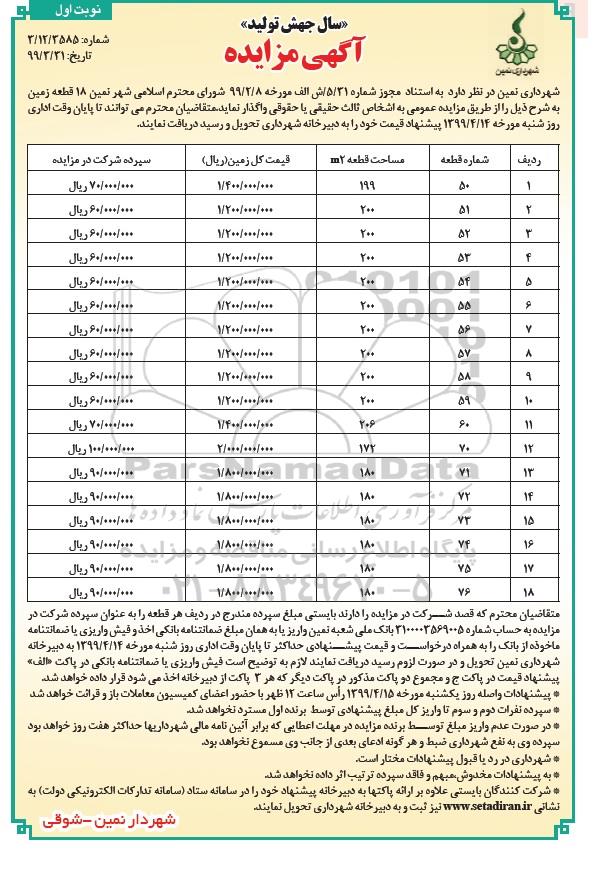 نوبت اول
«سال جهش تولید»
آگهی مزایده
شماره: ۳/۱۲/۳۵۸۵
تاریخ: ۹۹/۳/۳۱
شهرداری نمین
شهرداری نمین در نظر دارد به استناد مجوز شماره ۵/۳۱/ش الف مورخه ۹۹/۲/۸ شورای محترم اسلامی شهر نمین ۱۸ قطعه زمین
به شرح ذیل را از طریق مزایده عمومی به اشخاص ثالث حقیقی یا حقوقی واگذار نماید.متقاضیان محترم می توانند تا پایان وقت اداری
روز شنبه مورخه ۱۳۹۹/۴/۱۴ پیشنهاد قیمت خود را به دبیرخانه شهرداری تحویل و رسید دریافت نمایند.
ردیف شماره قطعه مساحت قطعه m۲ قیمت کل زمین(ریال) سپرده شرکت در مزایده
۱ ۵۰ ۱۹۹ ۱/۴۰۰/۰۰۰/۰۰۰ ۷۰/۰۰۰/۰۰۰ ریال
۲ ۵۱ ۲۰۰ ۱/۲۰۰/۰۰۰/۰۰۰ ۶۰/۰۰۰/۰۰۰ ریال
۳ ۵۲ ۲۰۰ ۱/۲۰۰/۰۰۰/۰۰۰ ۶۰/۰۰۰/۰۰۰ ریال
۴ ۵۳ ۲۰۰ ۱/۲۰۰/۰۰۰/۰۰۰ ۶۰/۰۰۰/۰۰۰ ریال
۵ ۵۴ ۲۰۰ ۱/۲۰۰/۰۰۰/۰۰۰ ۶۰/۰۰۰/۰۰۰ ریال
۶ ۵۵ ۲۰۰ ۱/۲۰۰/۰۰۰/۰۰۰ ۶۰/۰۰۰/۰۰۰ ریال
۷ ۵۶ ۲۰۰ ۱/۲۰۰/۰۰۰/۰۰۰ ۶۰/۰۰۰/۰۰۰ ریال
۸ ۵۷ ۲۰۰ ۱/۲۰۰/۰۰۰/۰۰۰ ۶۰/۰۰۰/۰۰۰ ریال
۹ ۵۸ ۲۰۰ ۱/۲۰۰/۰۰۰/۰۰۰ ۶۰/۰۰۰/۰۰۰ ریال
۱۰ ۵۹ ۲۰۰ ۱/۲۰۰/۰۰۰/۰۰۰ ۶۰/۰۰۰/۰۰۰ ریال
۱۱ ۶۰ ۲۰۶ ۱/۴۰۰/۰۰۰/۰۰۰ ۷۰/۰۰۰/۰۰۰ ریال
۱۲ ۷۰ ۱۷۲ ۲/۰۰۰/۰۰۰/۰۰۰ ۱۰۰/۰۰۰/۰۰۰ ریال
۱۳ ۷۱ ۱۸۰ ۱/۸۰۰/۰۰۰/۰۰۰ ۹۰/۰۰۰/۰۰۰ ریال
۱۴ ۷۲ ۱۸۰ ۱/۸۰۰/۰۰۰/۰۰۰ ۹۰/۰۰۰/۰۰۰ ریال
۱۵ ۷۳ ۱۸۰ ۱/۸۰۰/۰۰۰/۰۰۰ ۹۰/۰۰۰/۰۰۰ ریال
۱۶ ۷۴ ۱۸۰ ۱/۸۰۰/۰۰۰/۰۰۰ ۹۰/۰۰۰/۰۰۰ ریال
۱۷ ۷۵ ۱۸۰ ۱/۸۰۰/۰۰۰/۰۰۰ ۹۰/۰۰۰/۰۰۰ ریال
۱۸ ۷۶ ۱۸۰ ۱/۸۰۰/۰۰۰/۰۰۰ ۹۰/۰۰۰/۰۰۰ ریال
ParsNamadData
مرکز فرآوری اطلاعات پارس نماد داده ها
پایگاه اطلاع رسانی مناقصه و مزایده
۰۲۱-۸۸۳۴۹۶۷۰-۵
متقاضیان محترم که قصد شرکت در مزایده را دارند بایستی مبلغ سپرده مندرج در ردیف هر قطعه را به عنوان سپرده شرکت در
مزایده به حساب شماره ۳۱۰۰۰۰۳۵۶۹۰۰۵ بانک ملی شعبه نمین واریز یا به همان مبلغ ضمانتنامه بانکی اخذ و فیش واریزی یا ضمانتنامه
ماخوذه از بانک را به همراه درخواست و قیمت پیشنهادی حداکثر تا پایان وقت اداری روز شنبه مورخه ۱۳۹۹/۴/۱۴ به دبیرخانه
شهرداری نمین تحویل و در صورت لزوم رسید دریافت نمایند لازم به توضیح است فیش واریزی یا ضمانتنامه بانکی در پاکت «الف»
پیشنهاد قیمت در پاکت ج و مجموع دو پاکت مذکور در پاکت دیگر که هر ۳ پاکت از دبیرخانه اخذ می شود قرار داده خواهد شد.
* پیشنهادات واصله روز یکشنبه مورخه ۱۳۹۹/۴/۱۵ رأس ساعت ۱۲ ظهر با حضور اعضای کمیسیون معاملات باز و قرائت خواهد شد
* سپرده نفرات دوم و سوم تا واریز کل مبلغ پیشنهادی توسط برنده اول مسترد نخواهد شد.
* در صورت عدم واریز مبلغ توسط برنده مزایده در مهلت اعطایی که برابر آئین نامه مالی شهرداریها حداکثر هفت روز خواهد بود
سپرده وی به نفع شهرداری ضبط و هر گونه ادعای بعدی از جانب وی مسموع نخواهد بود.
* شهرداری در رد یا قبول پیشنهادات مختار است.
* به پیشنهادات مخدوش،مبهم و فاقد سپرده ترتیب اثر داده نخواهد شد.
* شرکت کنندگان بایستی علاوه بر ارائه پاکتها به دبیرخانه پیشنهاد خود را در سامانه ستاد (سامانه تدارکات الکترونیکی دولت) به
نشانی www.setadiran.ir نیز ثبت و به دبیرخانه شهرداری تحویل نمایند.
شهردار نمین -شوقی